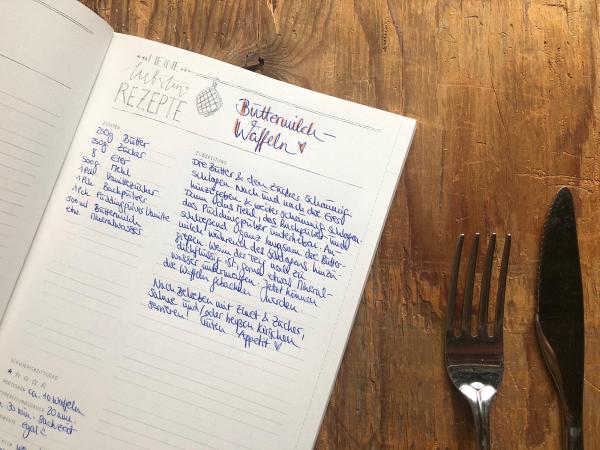 MEINE
liebsten
REZEPTE
Buttermilch-
Waffeln
ZUTATEN
250g Butter
250g Zucker
8 Eier
500g Mehl
1 Pck Vanillezucker
1 Pck. Backpulver
1 Pck. Puddingpulver Vanille
500 ml Buttermilch
etw. Mineralwasser
ZUBEREITUNG
Die Butter & den Zucker schaumig
schlagen. Nach und nach die Eier
hinzugeben & weiter schaumig schlagen.
Dann das Mehl, das Backpulver und
das Puddingpulver unterheben. An-
schließend ganz langsam die Butter-
milch, während des Schlagens hinzu-
gießen. Wenn der Teig noch zu
dickflüssig ist, sonst etwas Mineral-
wasser untermengen. Jetzt können
die Waffeln gebacken werden.
Nach Belieben mit Zimt & Zucker,
Sahne und/oder heißen Kirschen
servieren! Guten Appetit
SCHWIERIGKEITSGRAD
PORTIONEN ca. 10 Waffeln
ZUBEREITUNGSDAUER 20 min.
30 min. Backzeit
egal